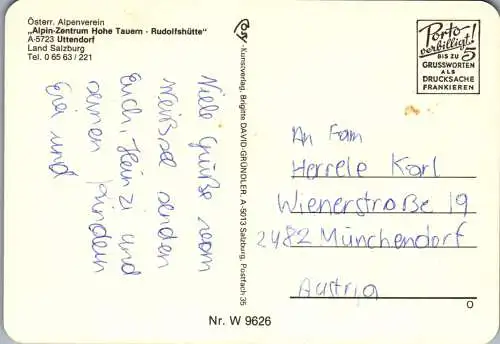 Österr. Alpenverein
„Alpin-Zentrum Hohe Tauern - Rudolfshütte"
A-5723 Uttendorf
Land Salzburg
Tel. 0 65 63 / 221
Viele Grüße vom
Weißsee senden
Euch, Heinzi und
seinen Kindern
Evi und
Kunstverlag, Brigitte DAVID GRÜNDLER, A-5013 Salzburg, Postfach 35
Porto
verbilligt!
BIS ZU 5
GRUSSWORTEN
ALS
DRUCKSACHE
FRANKIEREN
An Fam
Herrele Karl
Wienerstraße 19
2482 Münchendorf
Austria
O
Nr. W 9626